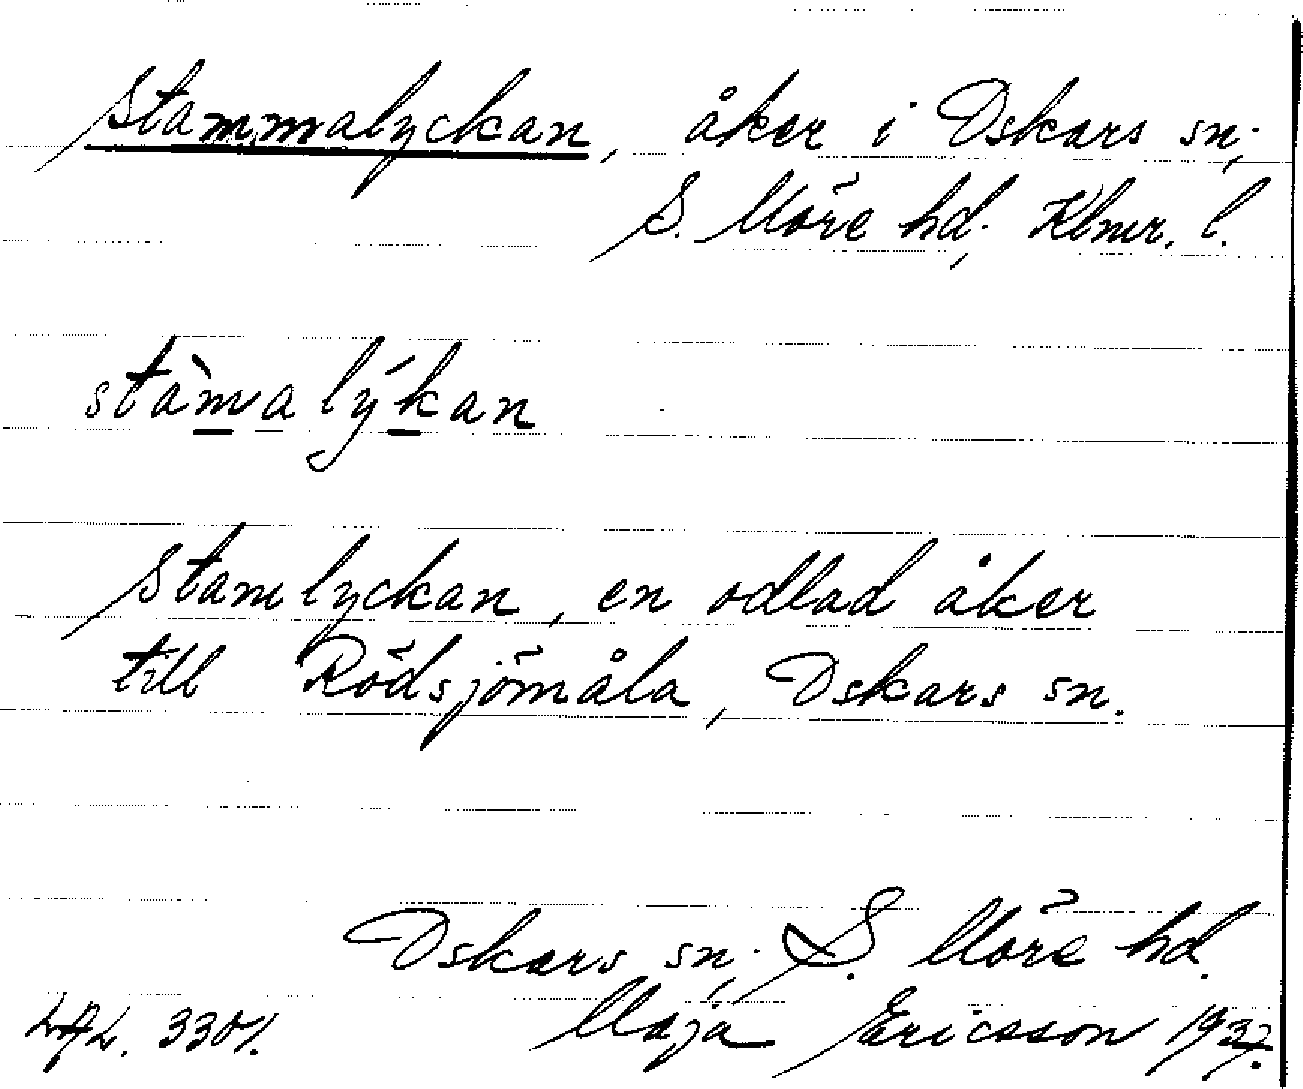 Stammalyckan, åker i Oskars sn;
S. Möre hd; Klmr. l.
stàmalýkan
Stamlyckan, en odlad åker
till Rödsjömåla, Oskars sn.
Oskars sn; S. Möre hd.
Maja Ericsson 1937.
3301.